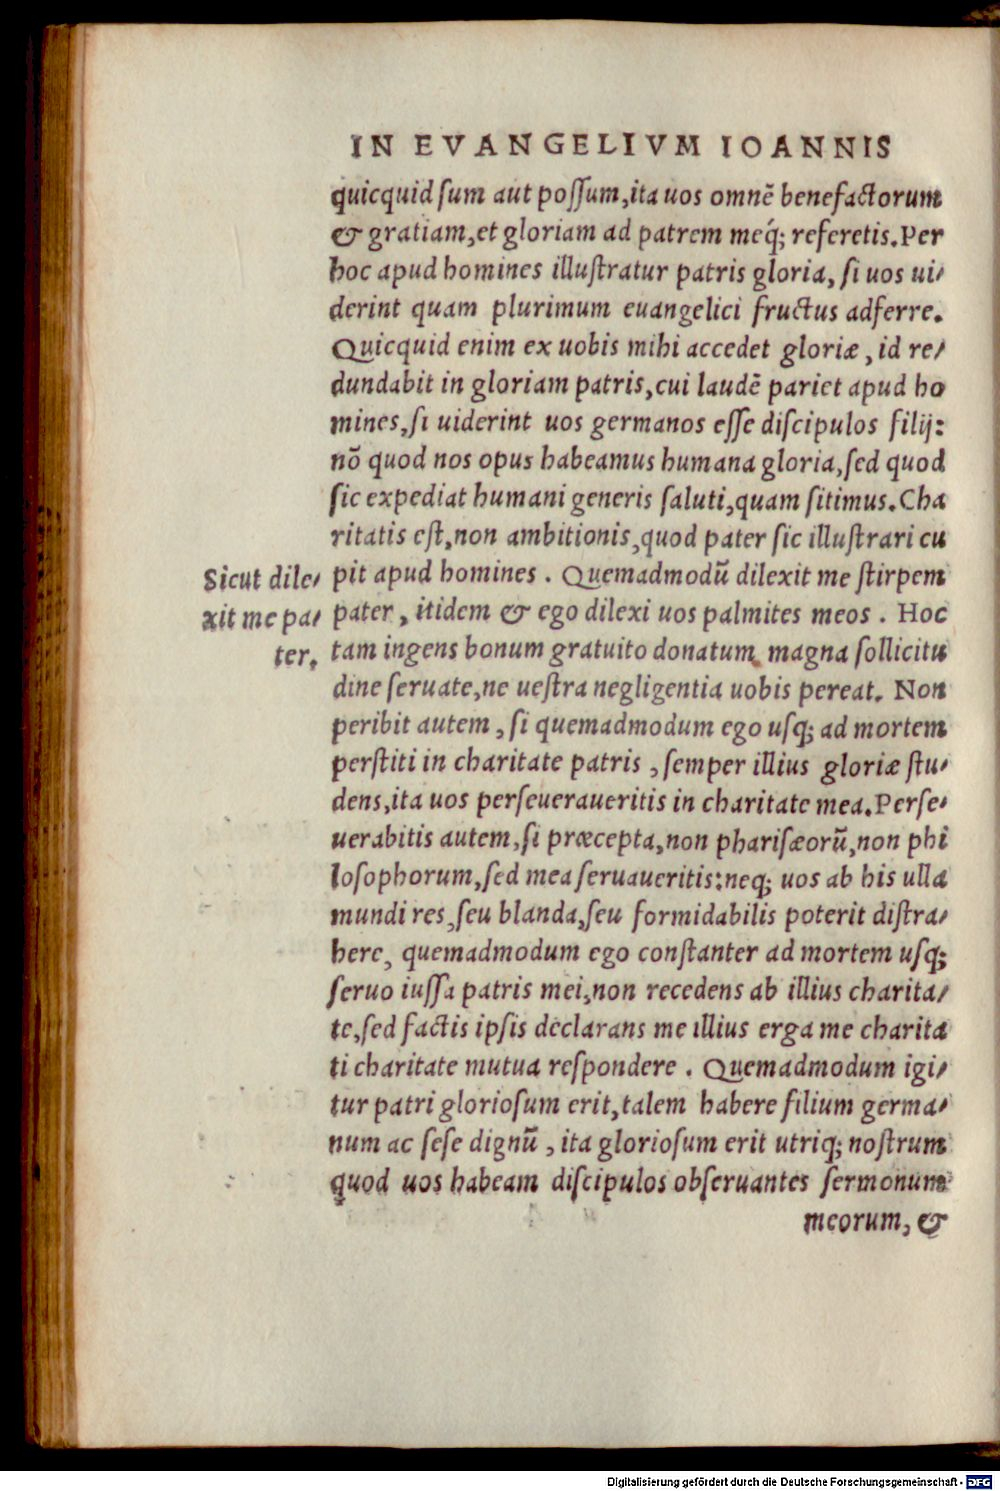 IN EVANGELIVM IOANNIS
quicquid ſum aut poſſum, ita uos omnē benefactorum
& gratiam, et gloriam ad patrem meq́; referetis. Per
hoc apud homines illuſtratur patris gloria, ſi uos ui-
derint quam plurimum euangelici fructus adferre.
Quicquid enim ex uobis mihi accedet gloriæ, id re-
dundabit in gloriam patris, cui laudē pariet apud ho
mines, ſi uiderint uos germanos eſſe diſcipulos filij:
nō quod nos opus habeamus humana gloria, ſed quod
ſic expediat humani generis ſaluti, quam ſitimus. Cha
ritatis eſt, non ambitionis, quod pater ſic illuſtrari cu
pit apud homines. Quemadmodū dilexit me ſtirpem
pater, itidem & ego dilexi uos palmites meos. Hoc
tam ingens bonum gratuito donatum magna ſollicitu
dine ſeruate, ne ueſtra negligentia uobis pereat. Non
peribit autem, ſi quemadmodum ego uſq; ad mortem
perſtiti in charitate patris, ſemper illius gloriæ ſtu-
dens, ita uos perſeueraueritis in charitate mea. Perſe-
uerabitis autem, ſi præcepta, non phariſæorū, non phi
loſophorum, ſed mea ſeruaueritis: neq; uos ab his ulla
mundi res, ſeu blanda, ſeu formidabilis poterit diſtra-
here, quemadmodum ego conſtanter ad mortem uſq;
ſeruo iuſſa patris mei, non recedens ab illius charita-
te, ſed factis ipſis declarans me illius erga me charita
ti charitate mutua reſpondere. Quemadmodum igi-
tur patri glorioſum erit, talem habere filium germa-
num ac ſeſe dignū, ita glorioſum erit utriq; noſtrum
quod uos habeam diſcipulos obſeruantes ſermonum
meorum, &
Sicut dile-
xit me pa-
ter.
Digitalisierung gefördert durch die Deutsche Forschungsgemeinschaft - DFG